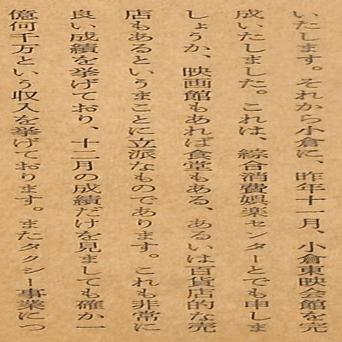 いたします。それから小倉に、昨年十一月、小倉東映会館を完
成いたしました。これは、綜合消費娯楽センターとでも申しま
しょうか、映画館もあれば食堂もある、あるいは百貨店的な売
店もあるというまことに立派なものであります。これも非常に
良い成績を挙げており、十二月の成績だけを見ましても確か一
億何千万という収入を挙げております。またタクシー事業につ